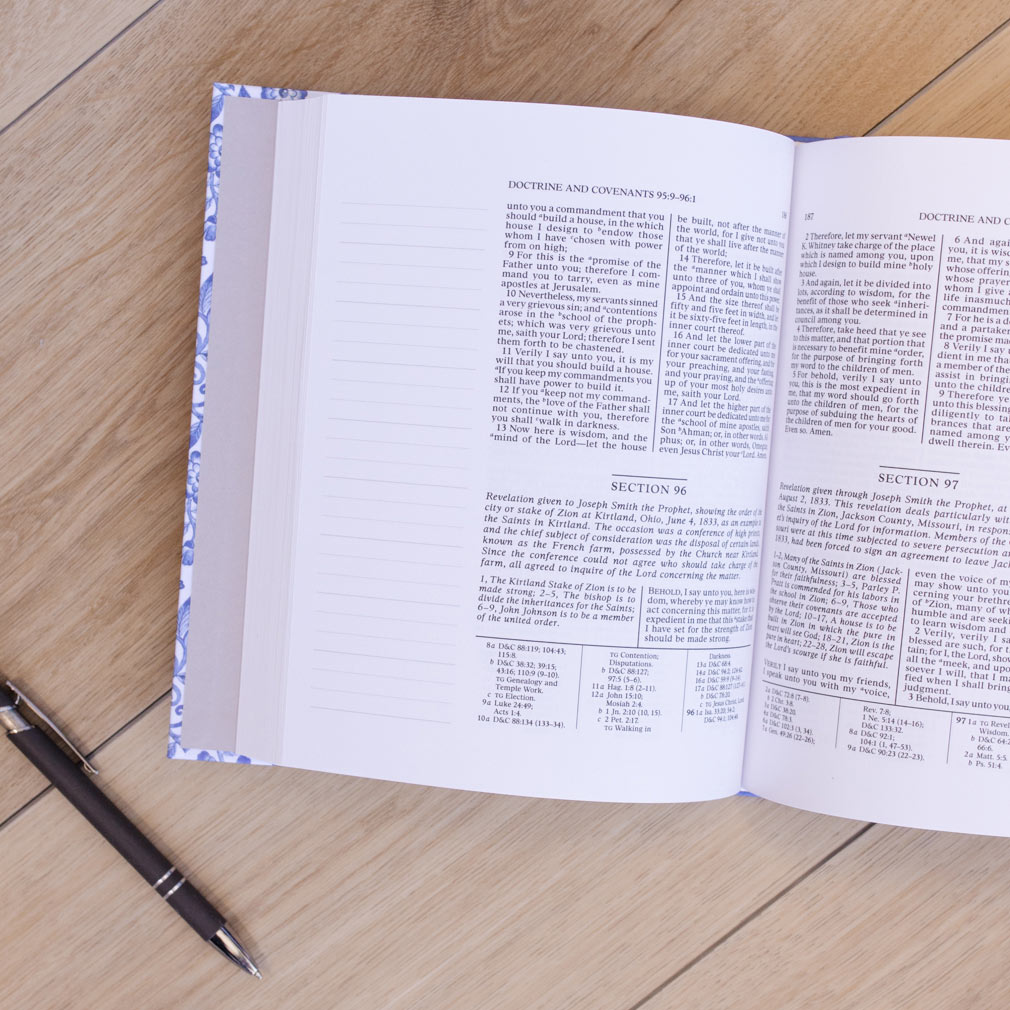 DOCTRINE AND COVENANTS 95:9–96:1
unto you a commandment that you
should ᵃbuild a house, in the which
house I design to ᵇendow those
whom I have ᶜchosen with power
from on high;
9 For this is the ᵃpromise of the
Father unto you; therefore I com-
mand you to tarry, even as mine
apostles at Jerusalem.
10 Nevertheless, my servants sinned
a very grievous sin; and ᵃcontentions
arose in the ᵇschool of the proph-
ets; which was very grievous unto
me, saith your Lord; therefore I sent
them forth to be chastened.
11 Verily I say unto you, it is my
will that you should build a house.
ᵃIf you keep my commandments you
shall have power to build it.
12 If you ᵃkeep not my command-
ments, the ᵇlove of the Father shall
not continue with you, therefore
you shall ᶜwalk in darkness.
13 Now here is wisdom, and the
ᵃmind of the Lord—let the house
be built, not after the manner of
the world, for I give not unto you
that ye shall live after the manner
of the world;
14 Therefore, let it be built after
the ᵃmanner which I shall show
unto three of you, whom ye shall
appoint and ordain unto this power.
15 And the size thereof shall be
fifty and five feet in width, and let
it be sixty-five feet in length, in the
inner court thereof.
16 And let the lower part of the
inner court be dedicated unto me
for your sacrament offering, and for
your preaching, and your fasting,
and your praying, and the ᵃoffering
up of your most holy desires unto
me, saith your Lord.
17 And let the higher part of the
inner court be dedicated unto me for
the ᵃschool of mine apostles, saith
Son ᵇAhman; or, in other words,
phus; or, in other words, Omegus;
even Jesus Christ your ᶜLord. Amen.
SECTION 96
Revelation given to Joseph Smith the Prophet, showing the order of the
city or stake of Zion at Kirtland, Ohio, June 4, 1833, as an example to
the Saints in Kirtland. The occasion was a conference of high priests,
and the chief subject of consideration was the disposal of certain lands,
known as the French farm, possessed by the Church near Kirtland.
Since the conference could not agree who should take charge of the
farm, all agreed to inquire of the Lord concerning the matter.
1, The Kirtland Stake of Zion is to be
made strong; 2–5, The bishop is to
divide the inheritances for the Saints;
6–9, John Johnson is to be a member
of the united order.
BEHOLD, I say unto you, here is wis-
dom, whereby ye may know how to
act concerning this matter, for it is
expedient in me that this ᵃstake that
I have set for the strength of Zion
should be made strong.
8a D&C 88:119; 104:43;
115:8.
b D&C 38:32; 39:15;
43:16; 110:9 (9–10).
TG Genealogy and
Temple Work.
c TG Election.
9a Luke 24:49;
Acts 1:4.
10a D&C 88:134 (133–34).
TG Contention;
Disputations.
b D&C 88:127;
97:5 (5–6).
11a Hag. 1:8 (2–11).
12a John 15:10;
Mosiah 2:4.
b 1 Jn. 2:10 (10, 15).
c 2 Pet. 2:17.
TG Walking in
Darkness.
13a D&C 68:4.
14a D&C 94:2;
16a D&C 59:9 (9–14).
17a D&C 88:127
b D&C 78:20.
c TG Jesus Christ, Lord.
96 1a Isa. 33:20; 54:2;
D&C 94:1;
187
DOCTRINE AND C
2 Therefore, let my servant ᵃNewel
K. Whitney take charge of the place
which is named among you, upon
which I design to build mine ᵇholy
house.
3 And again, let it be divided into
lots, according to wisdom, for the
benefit of those who seek ᵃinheri-
tances, as it shall be determined in
council among you.
4 Therefore, take heed that ye see
to this matter, and that portion that
is necessary to benefit mine ᵃorder,
for the purpose of bringing forth
my word to the children of men.
5 For behold, verily I say unto
you, this is the most expedient in
me, that my word should go forth
unto the children of men, for the
purpose of subduing the hearts of
the children of men for your good.
Even so. Amen.
6 And agai
you, it is wis
me, that my s
whose offerin
whose prayer
whom I give
life inasmuch
commandmen
7 For he is a d
and a partake
the promise ma
8 Verily I say u
dient in me tha
a member of the
assist in bringi
unto the childre
9 Therefore ye
unto this blessin
diligently to ta
brances that are
named among y
dwell therein. Ev
SECTION 97
Revelation given through Joseph Smith the Prophet, at
August 2, 1833. This revelation deals particularly wit
the Saints in Zion, Jackson County, Missouri, in respons
et's inquiry of the Lord for information. Members of the
souri were at this time subjected to severe persecution a
1833, had been forced to sign an agreement to leave Jac
1–2, Many of the Saints in Zion (Jack-
son County, Missouri) are blessed
for their faithfulness; 3–5, Parley P.
Pratt is commended for his labors in
the school in Zion; 6–9, Those who
observe their covenants are accepted
by the Lord; 10–17, A house is to be
built in Zion in which the pure in
heart will see God; 18–21, Zion is the
pure in heart; 22–28, Zion will escape
the Lord's scourge if she is faithful.
VERILY I say unto you my friends,
I speak unto you with my ᵃvoice,
even the voice of my
may show unto you
cerning your brethre
of ᵇZion, many of wh
humble and are seeki
to learn wisdom and
2 Verily, verily I sa
blessed are such, for t
tain; for I, the Lord, show
all the ᵃmeek, and upo
soever I will, that I m
fied when I shall bring
judgment.
3 Behold, I say unto you,
2a D&C 72:8 (7–8).
b 2 Chr. 3:8.
3a D&C 38:20.
4a D&C 78:3.
6a D&C 102:3 (3, 34).
7a Gen. 49:26 (22–26);
Rev. 7:8;
1 Ne. 5:14 (14–16);
D&C 133:32.
8a D&C 92:1;
104:1 (1, 47–53).
9a D&C 90:23 (22–23).
97 1a TG Revel
Wisdom.
b D&C 64:2
66:6.
2a Matt. 5:5
b Ps. 51:4.